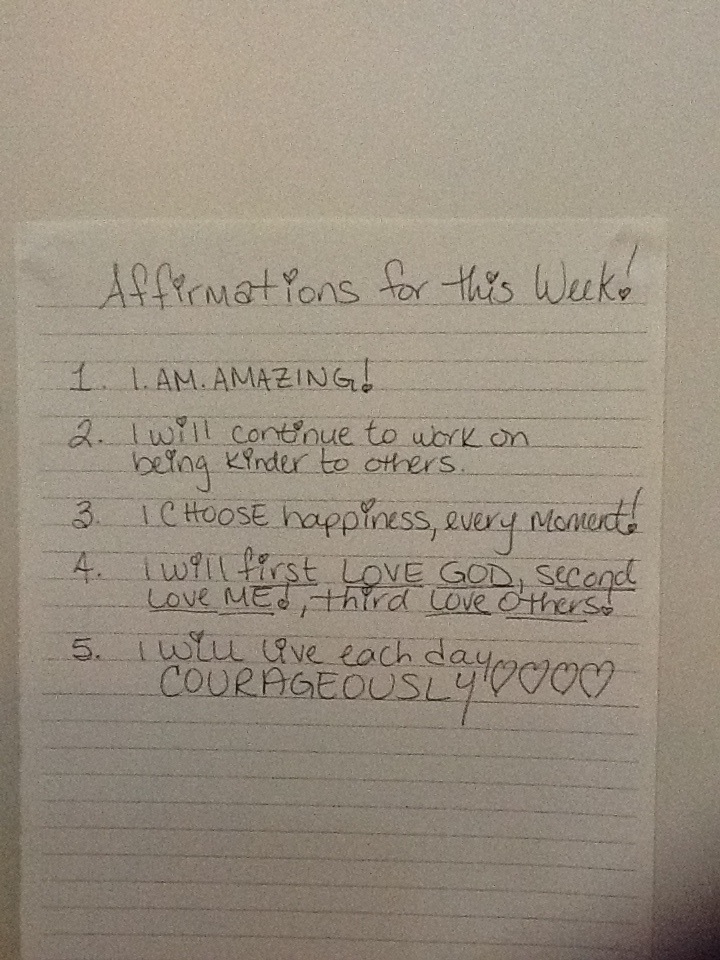 Affirmations for this Week!
1. I.AM.AMAZING!
2. I will continue to work on
being kinder to others.
3. I CHOOSE happiness, every Moment!
4. I will first LOVE GOD, second
Love ME!, third Love Others!
5. I will live each day
COURAGEOUSLY♡♡♡♡